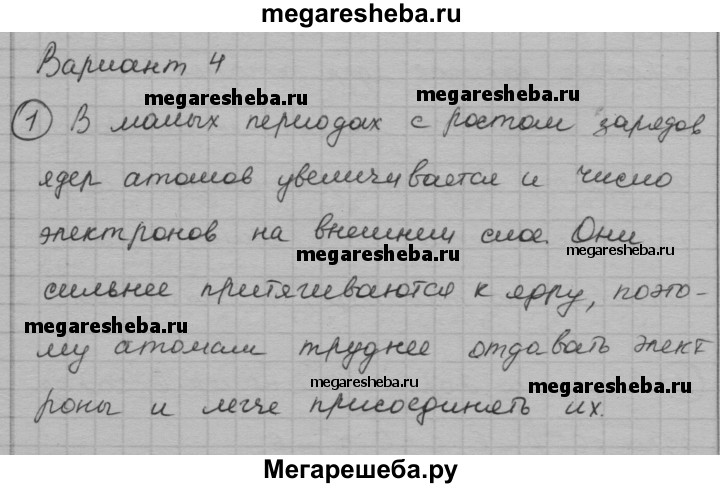 megaresheba.ru
Вариант 4
megaresheba.ru
megaresheba.ru
1 В малых периодах с ростом зарядов
ядер атомов увеличивается и число
электронов на внешнем слое. Они
megaresheba.ru
megaresheba.ru
сильнее притягиваются к ядру, поэто-
megaresheba.ru
му атомам труднее отдавать элект
megaresheba.ru
megaresheba.ru
роны и легче присоединять их.
Мегарешеба.ру